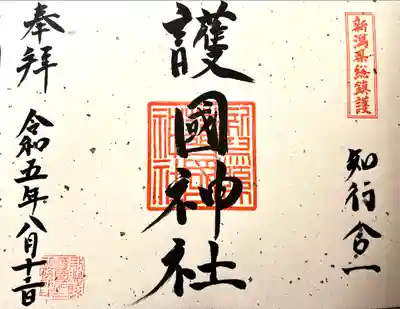 新潟県総鎮護
知行合一
護國神社
奉拝
令和五年八月十三日